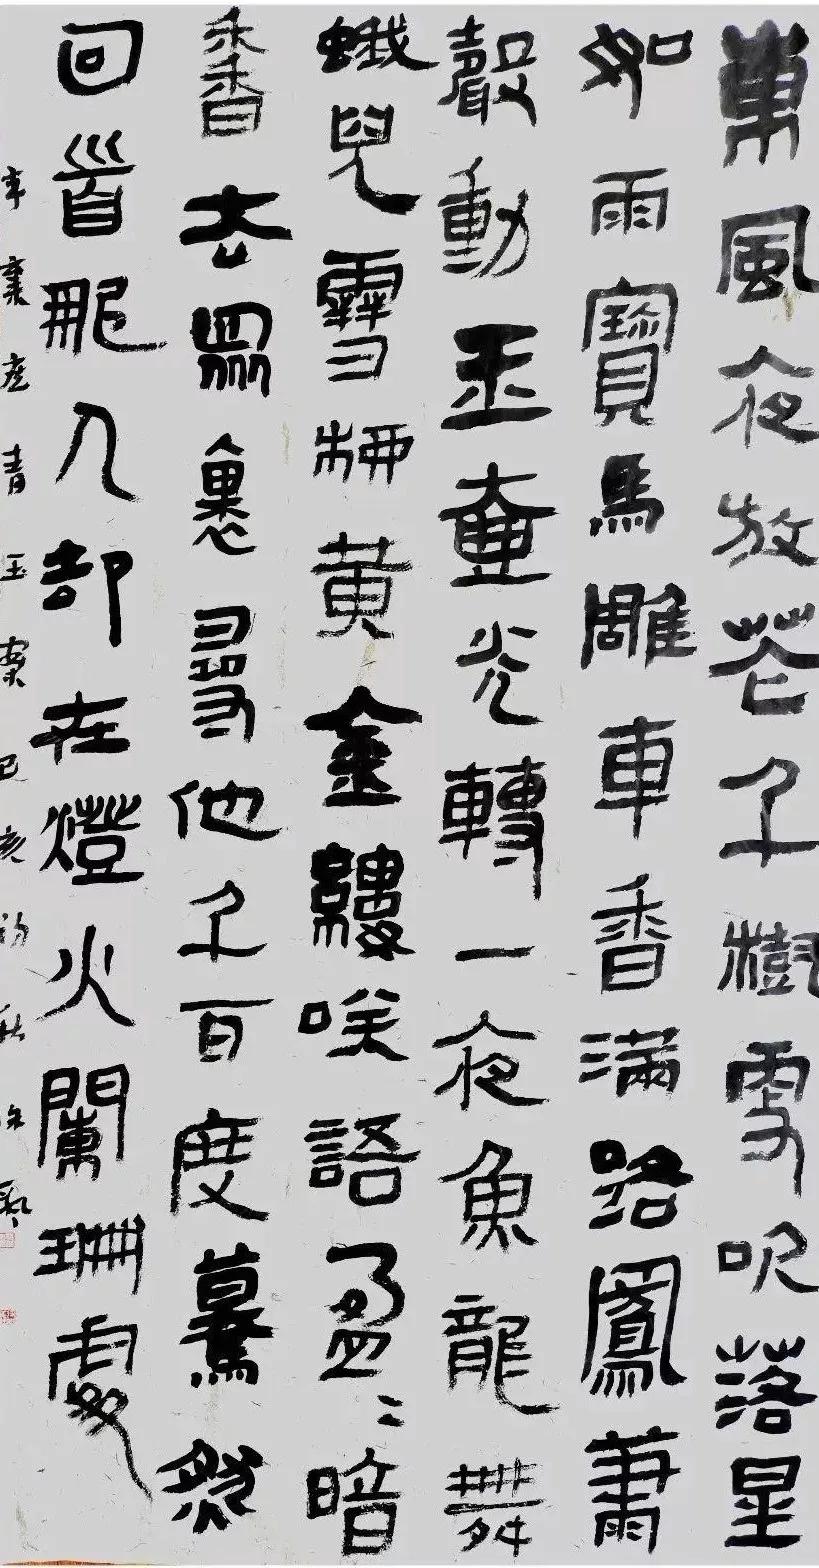 東風夜放花千樹更吹落星
如雨寶馬雕車香滿路鳳蕭
聲動玉壺光轉一夜魚龍舞
蛾兒雪柳黃金縷咲語盈〻暗
香去眾裏尋他千百度驀然
回首那人却在燈火闌珊處
辛棄疾青玉案己亥初秋